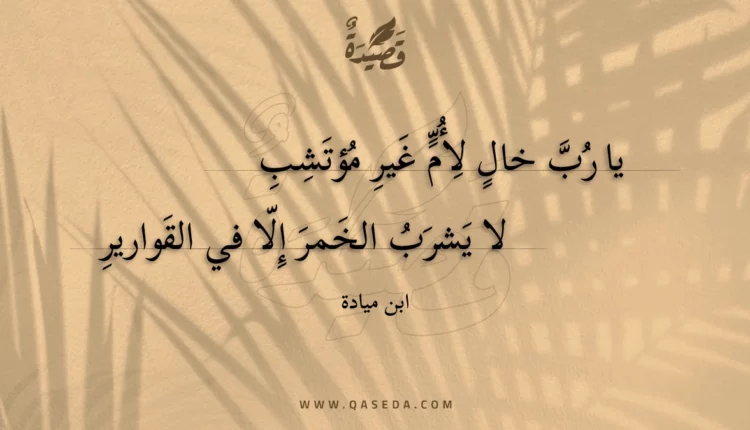 قَصِيْدَةٌ
يا رُبَّ خالٍ لِأُمٍّ غَيرِ مُؤتَشِبِ
لا يَشرَبُ الخَمرَ إِلّا في القَواريرِ
ابن ميادة
WWW.QASEDA.COM